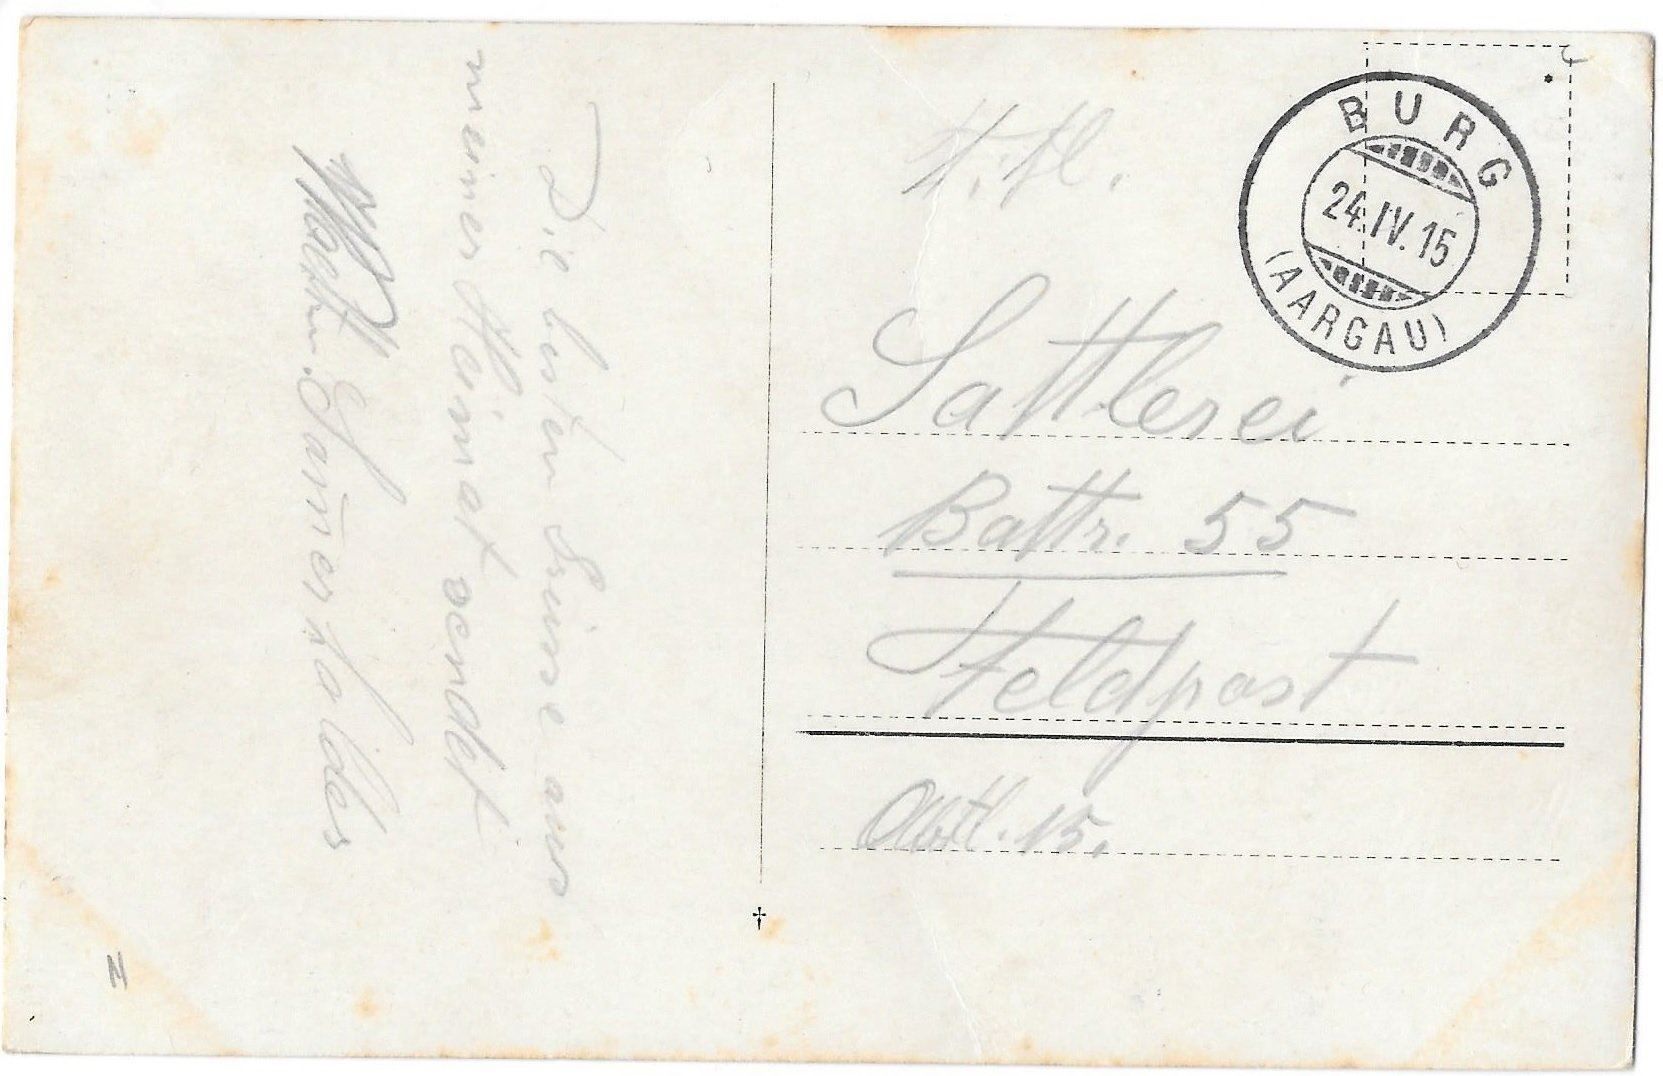 Die besten Grüsse aus
meiner Heimat sendet
BURG
24.IV.15
(AARGAU)
Sattlerei
Battr. 55
Feldpost
Abtl. 15.